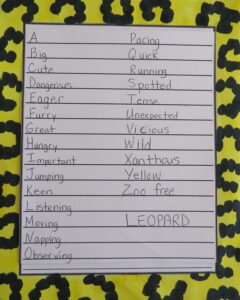 A
Big
Cute
Dangerous
Eager
Furry
Great
Hungry
Important
Jumping
Keen
Listening
Moving
Napping
Observing
Pacing
Quick
Running
Spotted
Tense
Unexpected
Vicious
Wild
Xanthaus
Yellow
Zoo free
LEOPARD